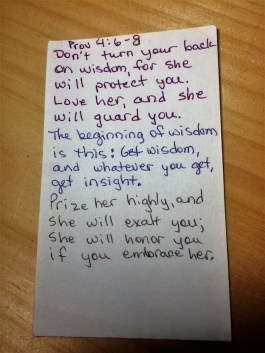 Prov 4:6-8
Don't turn your back
on wisdom, for she
will protect you.
Love her, and she
will guard you.
The beginning of wisdom
is this: Get wisdom,
and whatever you get,
get insight.
Prize her highly, and
she will exalt you;
She will honor you
if you embrace her.